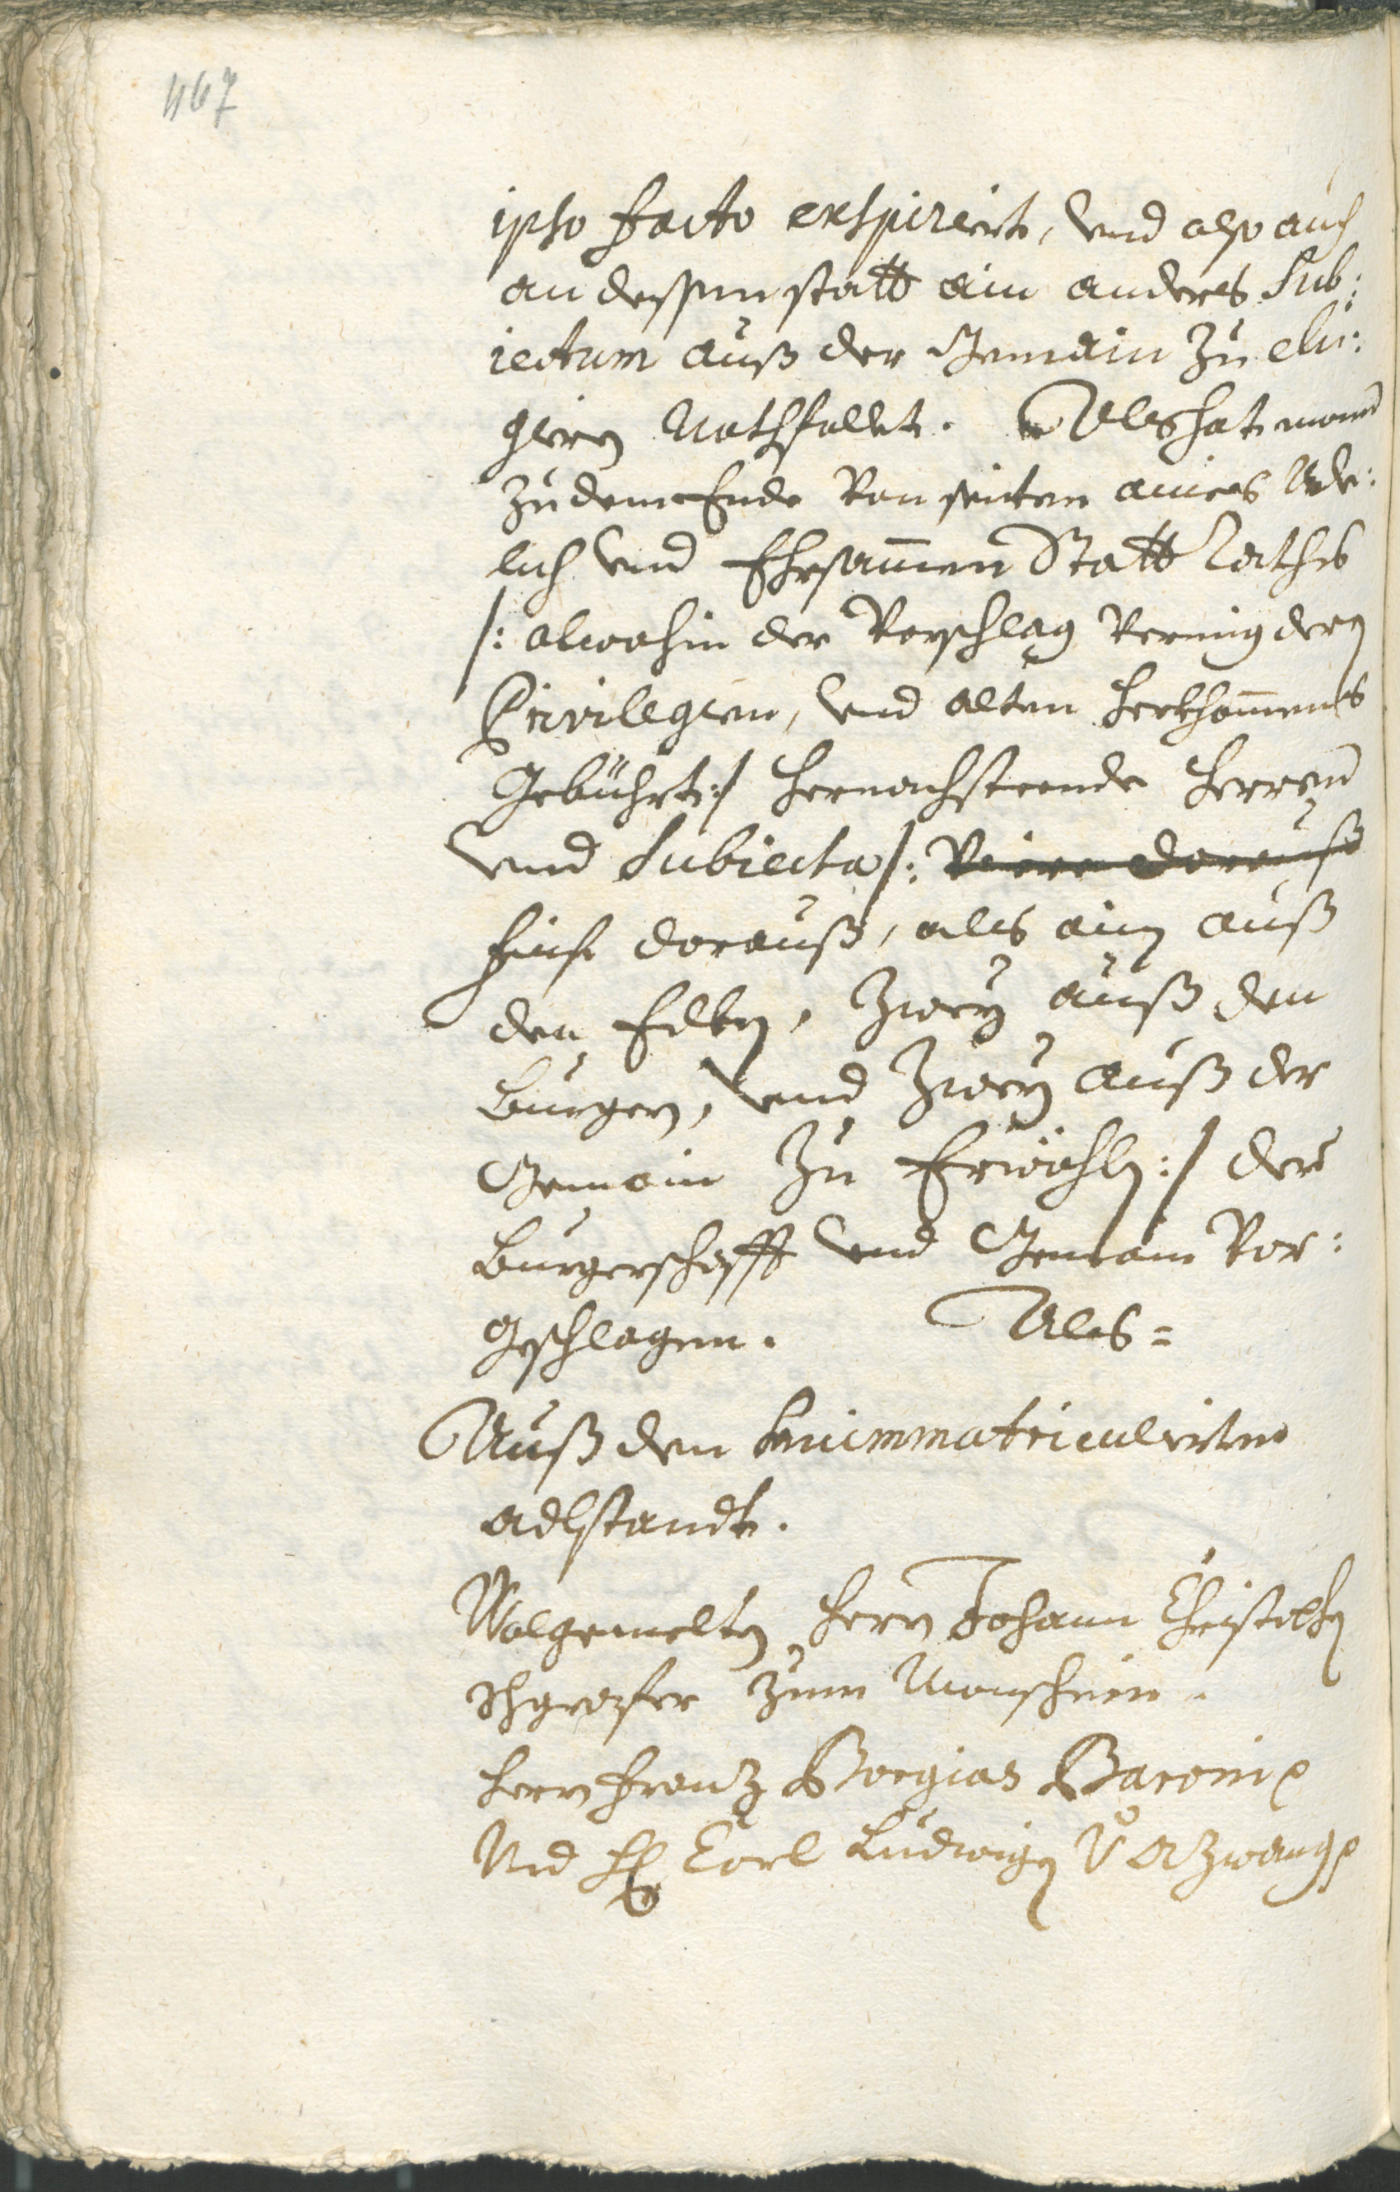 467
ipso facto exspiriert, vnd also auch
an dessen statt ain anders Sub:
iectum auß der Gemain zu eli:
giern Nothfallet. Als hat mann
zu dem Ende von seiten aines Ade:
lich vnd Ehrsammen Statt Raths
/: alwohin der Vorschlag vermig dern
Privilegien, vnd alten herkhommens
Gebührt :/ hernachsteende Herren
vnd Subiecta /: Viere darauß
finf darauß, als ain auß
den Edlen, Zwey auß den
Burgern, vnd Zwey auß der
Gemain zu Erwöhlen :/ der
Burgerschafft vnd Gemain vor:
geschlagen. Als=
Auß den Immatriculierten
adlstandt.
Wolgemelten Herrn Johann Christophen
Ihgraser zum Monschein.
Herrn Franz Borgias Baroni
Vnd H: Carl Ludwigen v: Azwang